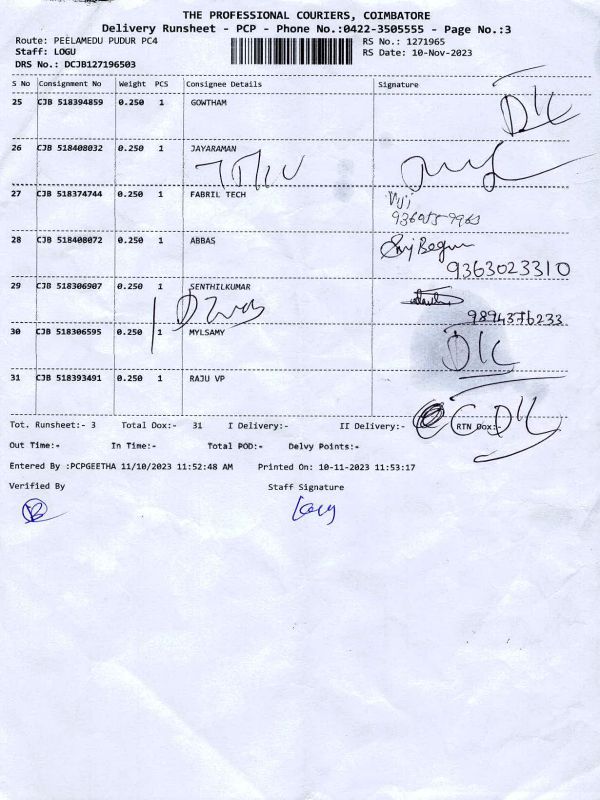 THE PROFESSIONAL COURIERS, COIMBATORE
Delivery Runsheet - PCP - Phone No.:0422-3505555 - Page No.:3
Route: PEELAMEDU PUDUR PC4 RS No.: 1271965
Staff: LOGU RS Date: 10-Nov-2023
DRS No.: DCJB127196503
S No Consignment No Weight PCS Consignee Details Signature
25 CJB 518394859 0.250 1 GOWTHAM
26 CJB 518408032 0.250 1 JAYARAMAN
27 CJB 518374744 0.250 1 FABRIL TECH
28 CJB 518408072 0.250 1 ABBAS
9363023310
29 CJB 518306907 0.250 1 SENTHILKUMAR
9894376233
30 CJB 518306595 0.250 1 MYLSAMY
31 CJB 518393491 0.250 1 RAJU VP
Tot. Runsheet:- 3 Total Dox:- 31 I Delivery:- II Delivery:- RTN Dox:-
Out Time:- In Time:- Total POD:- Delvy Points:-
Entered By :PCPGEETHA 11/10/2023 11:52:48 AM Printed On: 10-11-2023 11:53:17
Verified By Staff Signature